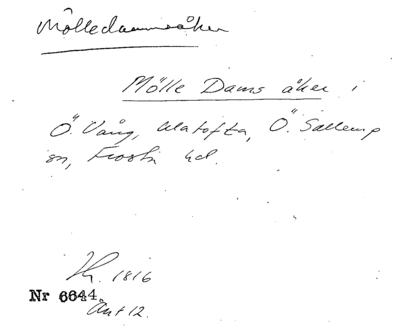 Mölledammsåker
Mölle Dams åker i
Ö. Vång, Klatofta, Ö. Sallerup
sn, Frosta hd.
1816
Nr 6644.
Akt 12.